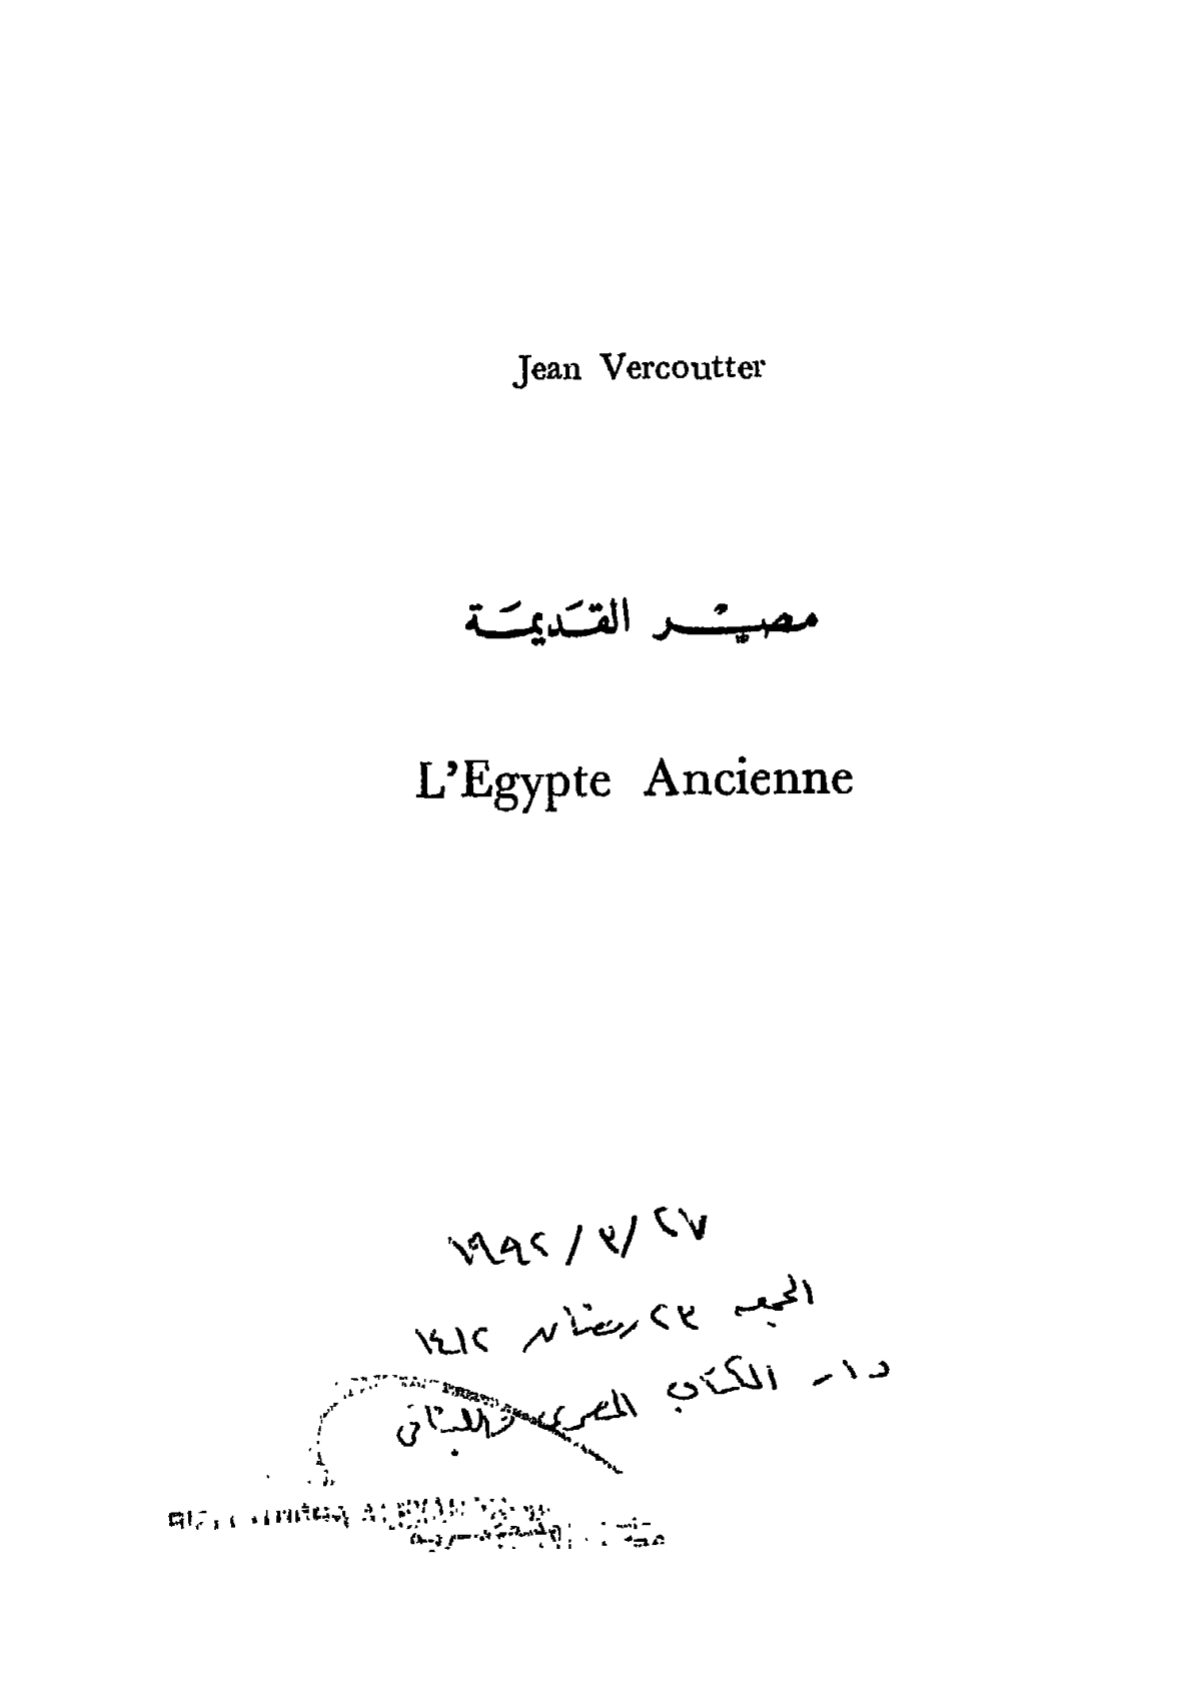 Jean Vercoutter
مصر القديمة
L'Egypte Ancienne
٢٧ / ٣ / ١٩٩٢
الجمعه ٢٣ رمضان ١٤١٢
دار الكتاب المصرى واللبنانى